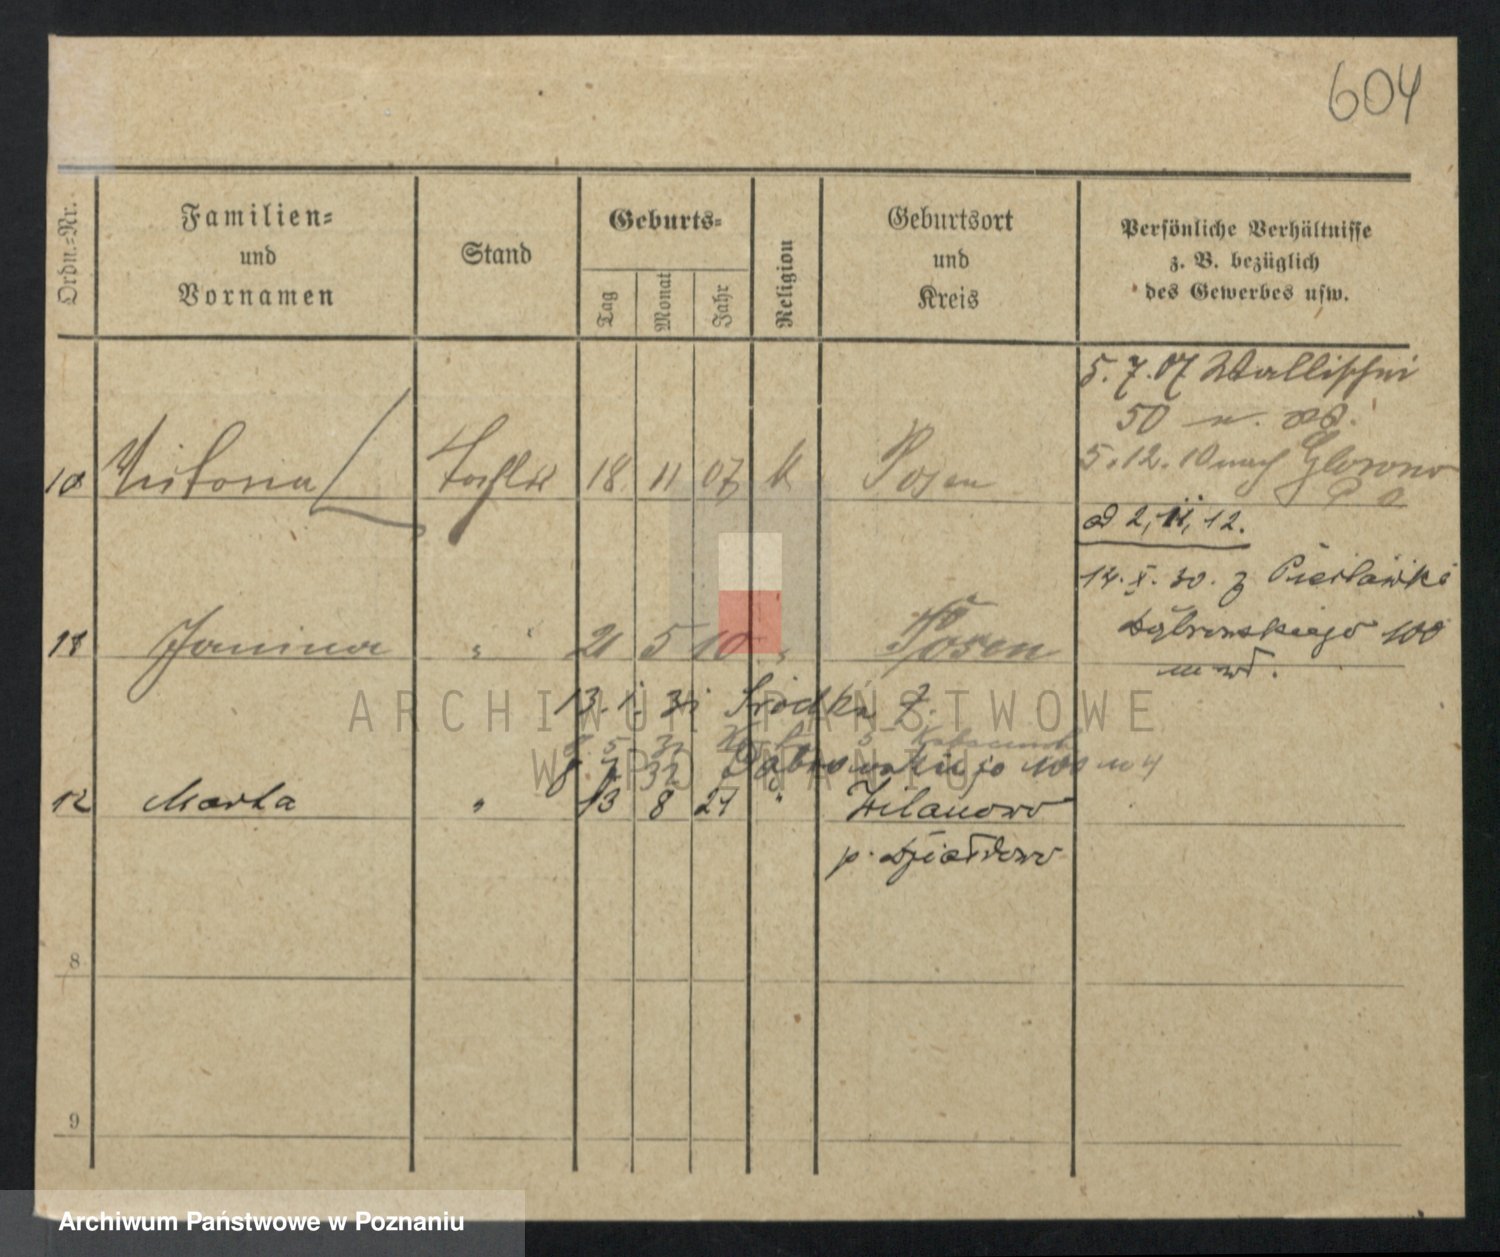 604
Ordn.-Nr.
Familien-
und
Vornamen
Stand
Geburts-
Tag
Monat
Jahr
Religion
Geburtsort
und
Kreis
Persönliche Verhältnisse
z. B. bezüglich
des Gewerbes usw.
5. 7. 07 Wallischei
50
10 Victoria Tochter 18 11 07 k Posen
5. 12. 10 nach Glowno
2, 11, 12.
14. X. 30. z
11 Janina " 21 5 10 " Posen
Dąbrowskiego 100
13. 1. 31 Śródka 7.
Dąbrowskiego 100 m 4
12 Marta " 13 8 21 " Wilanowo
p. Działdowo
8
9
ARCHIWUM PAŃSTWOWE
W POZNANIU
Archiwum Państwowe w Poznaniu